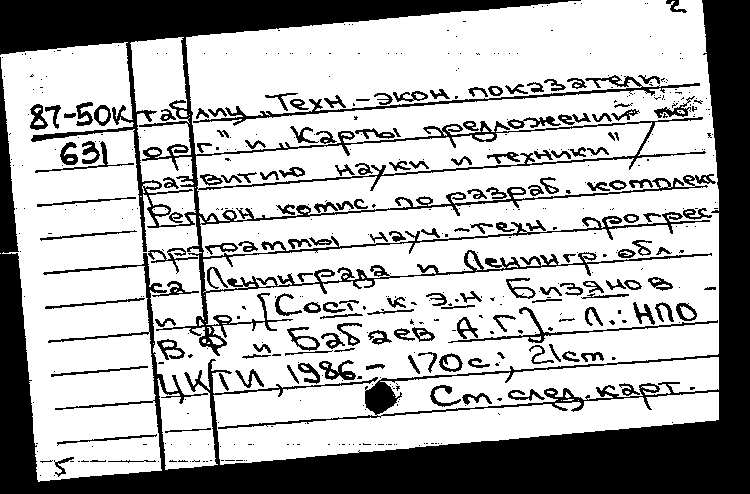 2
87-50К таблиц „Техн.-экон. показатели
631 орг." и „Карты предложений по
развитию науки и техники" /
Регион. комис. по разраб. комплекс
программы науч.-техн. прогрес-
са Ленинграда и Ленингр. обл.
и др.; [Сост. к. э. н. Бизянов
В. Ф. и Бабаев А. Г.]. - Л.: НПО
ЦКТИ, 1986. - 170 с.; 21 см.
См. след. карт.
5